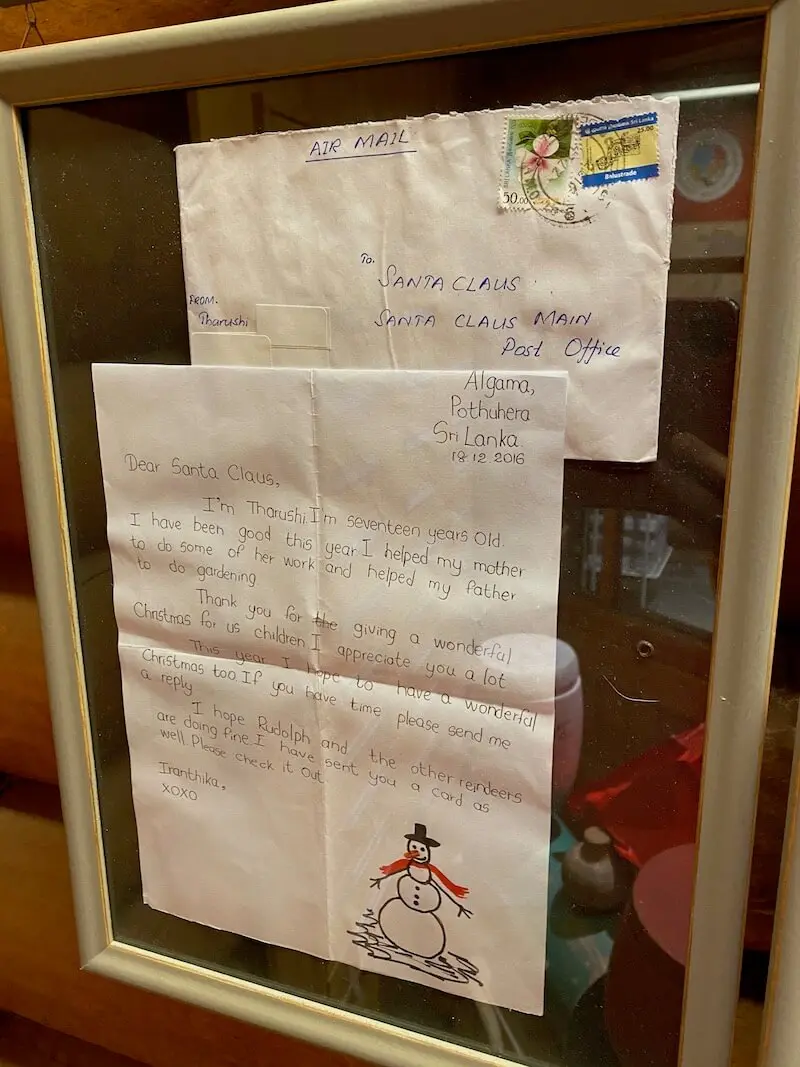 AIR MAIL
50.00
25.00
Balustrade
To.
SANTA CLAUS
SANTA CLAUS MAIN
Post Office
FROM.
Tharushi
Algama,
Pothuhera
Sri Lanka.
18.12.2016
Dear Santa Claus,
I'm Tharushi. I'm seventeen years Old.
I have been good this year. I helped my mother
to do some of her work and helped my father
to do gardening
Thank you for the giving a wonderful
Christmas for us children. I appreciate you a lot
This year I hope to have a wonderful
Christmas too. If you have time please send me
a reply
I hope Rudolph and the other reindeers
are doing fine. I have sent you a card as
well. Please check it out
Iranthika,
xoxo